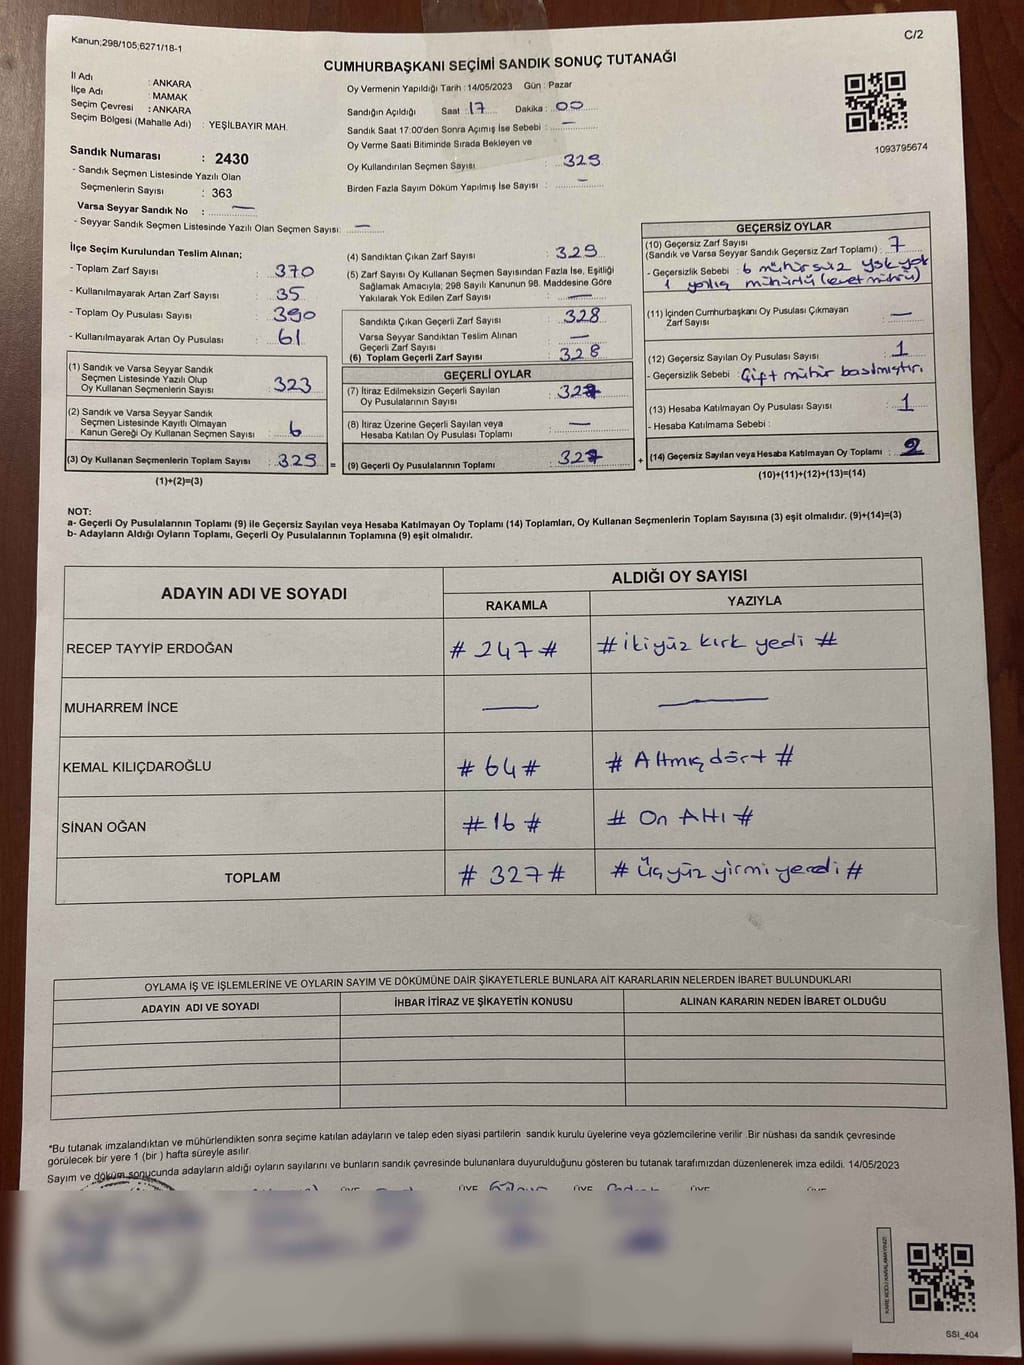 Kanun;298/105;6271/18-1
C/2
CUMHURBAŞKANI SEÇİMİ SANDIK SONUÇ TUTANAĞI
İl Adı : ANKARA
İlçe Adı : MAMAK
Seçim Çevresi : ANKARA
Seçim Bölgesi (Mahalle Adı) : YEŞİLBAYIR MAH.
Sandık Numarası : 2430
- Sandık Seçmen Listesinde Yazılı Olan
Seçmenlerin Sayısı : 363
Varsa Seyyar Sandık No : —
- Seyyar Sandık Seçmen Listesinde Yazılı Olan Seçmen Sayısı: —
Oy Vermenin Yapıldığı Tarih : 14/05/2023 Gün : Pazar
Sandığın Açıldığı Saat : 17 Dakika : 00
Sandık Saat 17:00'den Sonra Açımış İse Sebebi : —
Oy Verme Saati Bitiminde Sırada Bekleyen ve
Oy Kullandırılan Seçmen Sayısı : 329
Birden Fazla Sayım Döküm Yapılmış İse Sayısı : —
1093795674
İlçe Seçim Kurulundan Teslim Alınan;
- Toplam Zarf Sayısı : 370
- Kullanılmayarak Artan Zarf Sayısı : 35
- Toplam Oy Pusulası Sayısı : 390
- Kullanılmayarak Artan Oy Pusulası : 61
(1) Sandık ve Varsa Seyyar Sandık
Seçmen Listesinde Yazılı Olup
Oy Kullanan Seçmenlerin Sayısı : 323
(2) Sandık ve Varsa Seyyar Sandık
Seçmen Listesinde Kayıtlı Olmayan
Kanun Gereği Oy Kullanan Seçmen Sayısı : 6
(3) Oy Kullanan Seçmenlerin Toplam Sayısı : 329 =
(1)+(2)=(3)
(4) Sandıktan Çıkan Zarf Sayısı : 329
(5) Zarf Sayısı Oy Kullanan Seçmen Sayısından Fazla İse, Eşitliği
Sağlamak Amacıyla; 298 Sayılı Kanunun 98. Maddesine Göre
Yakılarak Yok Edilen Zarf Sayısı : —
Sandıkta Çıkan Geçerli Zarf Sayısı : 328
Varsa Seyyar Sandıktan Teslim Alınan
Geçerli Zarf Sayısı : —
(6) Toplam Geçerli Zarf Sayısı : 328
GEÇERLİ OYLAR
(7) İtiraz Edilmeksizin Geçerli Sayılan
Oy Pusulalarının Sayısı : 327
(8) İtiraz Üzerine Geçerli Sayılan veya
Hesaba Katılan Oy Pusulası Toplamı : —
(9) Geçerli Oy Pusulalarının Toplamı : 327 +
GEÇERSİZ OYLAR
(10) Geçersiz Zarf Sayısı
(Sandık ve Varsa Seyyar Sandık Geçersiz Zarf Toplamı) : 7
- Geçersizlik Sebebi : 6 mühürsüz ysk yok
1 yanlış mühürlü (evet mührü)
(11) İçinden Cumhurbaşkanı Oy Pusulası Çıkmayan
Zarf Sayısı : —
(12) Geçersiz Sayılan Oy Pusulası Sayısı : 1
- Geçersizlik Sebebi : Çift mühür basılmıştır.
(13) Hesaba Katılmayan Oy Pusulası Sayısı : 1
- Hesaba Katılmama Sebebi :
(14) Geçersiz Sayılan veya Hesaba Katılmayan Oy Toplamı : 2
(10)+(11)+(12)+(13)=(14)
NOT:
a- Geçerli Oy Pusulalarının Toplamı (9) ile Geçersiz Sayılan veya Hesaba Katılmayan Oy Toplamı (14) Toplamları, Oy Kullanan Seçmenlerin Toplam Sayısına (3) eşit olmalıdır. (9)+(14)=(3)
b- Adayların Aldığı Oyların Toplamı, Geçerli Oy Pusulalarının Toplamına (9) eşit olmalıdır.
ADAYIN ADI VE SOYADI
ALDIĞI OY SAYISI
RAKAMLA YAZIYLA
RECEP TAYYİP ERDOĞAN # 247 # # ikiyüz kırk yedi #
MUHARREM İNCE — —
KEMAL KILIÇDAROĞLU # 64 # # Altmış dört #
SİNAN OĞAN # 16 # # On Altı #
TOPLAM # 327 # # Üçyüz yirmi yedi #
OYLAMA İŞ VE İŞLEMLERİNE VE OYLARIN SAYIM VE DÖKÜMÜNE DAİR ŞİKAYETLERLE BUNLARA AİT KARARLARIN NELERDEN İBARET BULUNDUKLARI
ADAYIN ADI VE SOYADI İHBAR İTİRAZ VE ŞİKAYETİN KONUSU ALINAN KARARIN NEDEN İBARET OLDUĞU
*Bu tutanak imzalandıktan ve mühürlendikten sonra seçime katılan adayların ve talep eden siyasi partilerin sandık kurulu üyelerine veya gözlemcilerine verilir. Bir nüshası da sandık çevresinde
görülecek bir yere 1 (bir ) hafta süreyle asılır.
Sayım ve döküm sonucunda adayların aldığı oyların sayılarını ve bunların sandık çevresinde bulunanlara duyurulduğunu gösteren bu tutanak tarafımızdan düzenlenerek imza edildi. 14/05/2023
KARE KODU KARALAMAYINIZ!
SSI_404